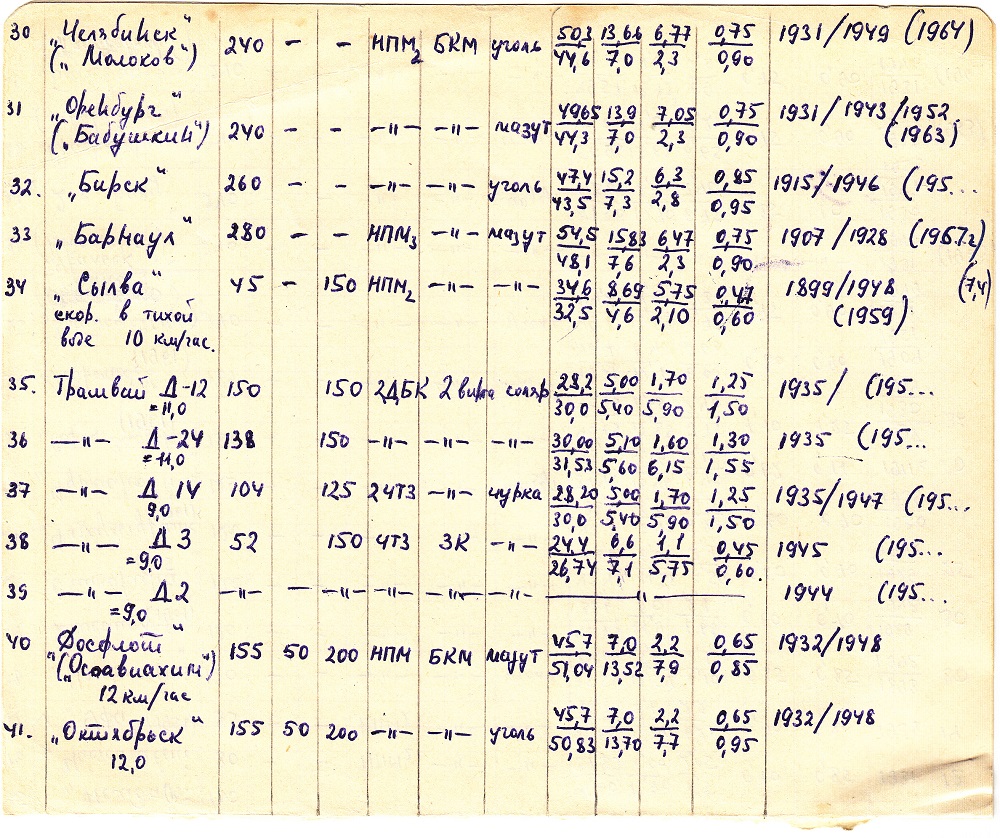 30 „Челябинск“ 240 – – НПМ2 БКМ уголь 50,3/44,6 13,66/7,0 6,77/2,3 0,75/0,90 1931/1949 (1964)
(„Молоков“)
31 „Оренбург“
(„Бабушкин“) 240 – – –"– –"– мазут 49,65/44,3 13,9/7,0 7,05/2,3 0,75/0,90 1931/1943/1952
(1963)
32. „Бирск“ 260 – – –"– –"– уголь 47,4/43,5 15,2/7,3 6,3/2,8 0,85/0,95 1915/1946 (195...
33 „Барнаул“ 280 – – НПМ3 –"– мазут 54,5/48,1 15,83/7,6 6,47/2,3 0,75/0,90 1907/1928 (1957г)
34 „Сылва“ 45 – 150 НПМ2 –"– –"– 34,6/32,5 8,69/4,6 5,75/2,10 0,47/0,60 1899/1948 (7,4)
скор. в тихой (1959)
воде 10 км/час.
35. Трамвай Д-12 150 150 2ДБК 2 винта соляр 28,2/30,0 5,00/5,40 1,70/5,90 1,25/1,50 1935/ (195...
=11,0
36 –"– Д-24 138 150 –"– –"– –"– 30,00/31,53 5,10/5,60 1,60/6,15 1,30/1,55 1935 (195...
=11,0
37 –"– Д 14 104 125 2ЧТЗ –"– чурка 28,20/30,0 5,00/5,40 1,70/5,90 1,25/1,50 1935/1947 (195...
9,0
38 –"– Д 3 52 150 ЧТЗ ЗК –"– 24,4/26,74 6,6/7,1 1,1/5,75 0,45/0,60. 1945 (195...
=9,0
39 –"– Д 2 –"– – –"– –"– –"– –"– –"– 1944 (195...
=9,0
40 „Досфлот“
(„Осоавиахим“) 155 50 200 НПМ БКМ мазут 45,7/51,04 7,0/13,52 2,2/7,9 0,65/0,85 1932/1948
12 км/час
41. „Октябрьск“ 155 50 200 –"– –"– уголь 45,7/50,83 7,0/13,70 2,2/7,7 0,65/0,95 1932/1948
12,0